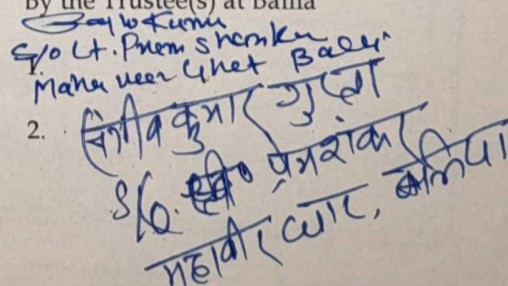 By the Trustee(s) at Ballia
Kumar
S/o Lt. Prem Shanker
1.
Mahaveer Ghat Ballia
2. संजीव कुमार गुप्ता
S/o. स्व० प्रेमशंकर
महावीर घाट, बलिया